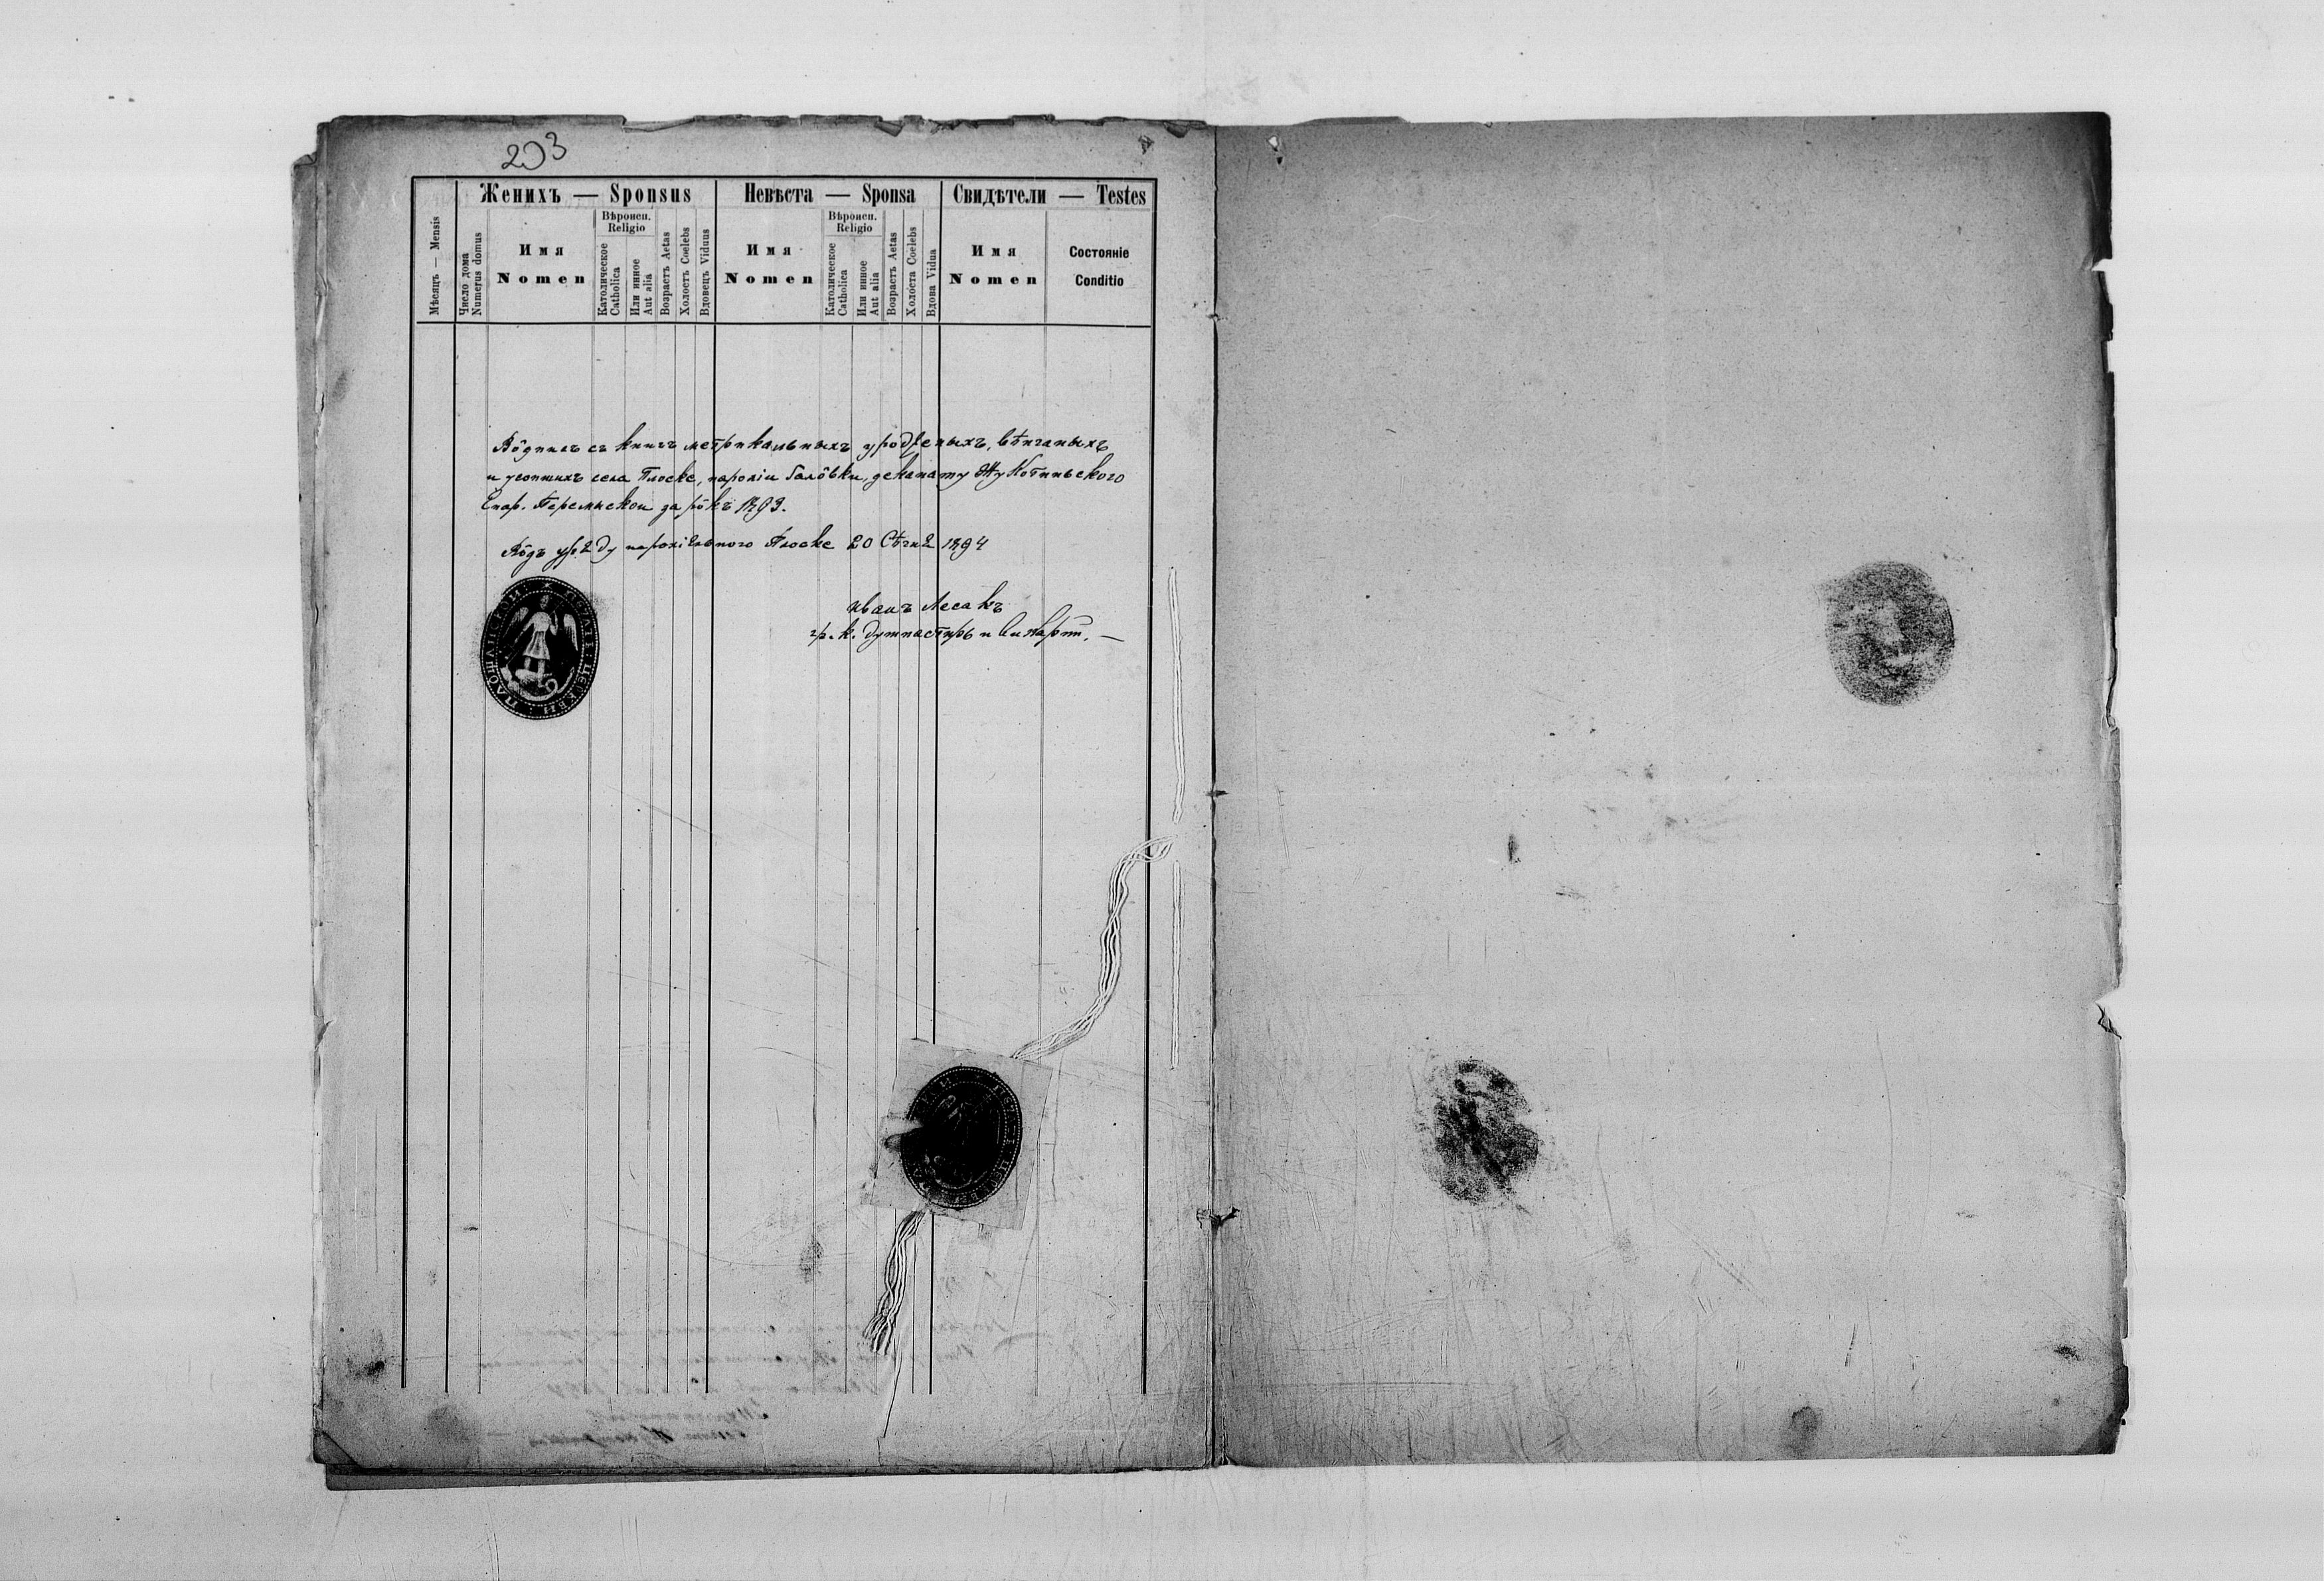 203
Женихъ — Sponsus
Невѣста — Sponsa
Свидѣтели — Testes
Мѣсяцъ — Mensis
Число дома
Numerus domus
Имя
Nomen
Вѣроисп.
Religio
Католическое
Catholica
Или инное
Aut alia
Возрастъ Aetas
Холостъ Coelebs
Вдовецъ Viduus
Имя
Nomen
Вѣроисп.
Religio
Католическое
Catholica
Или инное
Aut alia
Возрастъ Aetas
Холоста Coelebs
Вдова Vidua
Имя
Nomen
Состояніе
Conditio
Вôдписъ съ книгъ метрикальныхъ уродженыхъ, вѣнчаныхъ
и усопшихъ села Плоске, парохіи Галôвки, деканату Жукотиньского
Епар. Перемыскои за рôкъ 1893.
Вôдъ уряду парохіяльного Плоске 20 Сѣчня 1894
Иванъ Лесакъ
гр. к. душпастырь